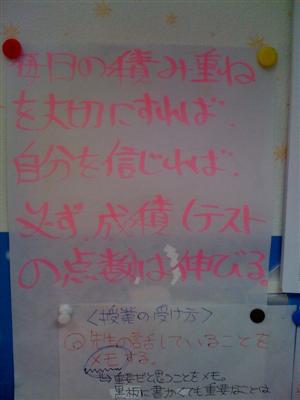 毎日の積み重ね
を大切にすれば、
自分を信じれば、
必ず成績(テスト
の点数)は伸びる。
〈授業の受け方〉
①先生の話していることを
メモする。
→重要だと思うことをメモ。
黒板に書かなくても重要なことは